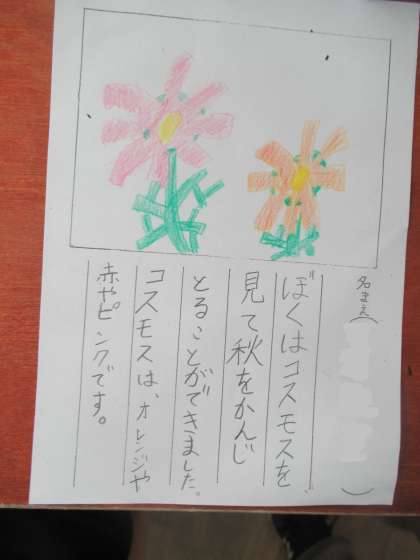 名まえ（　）
ぼくはコスモスを、
見て秋をかんじ
とることができました。
コスモスは、オレンジや
赤やピンクです。